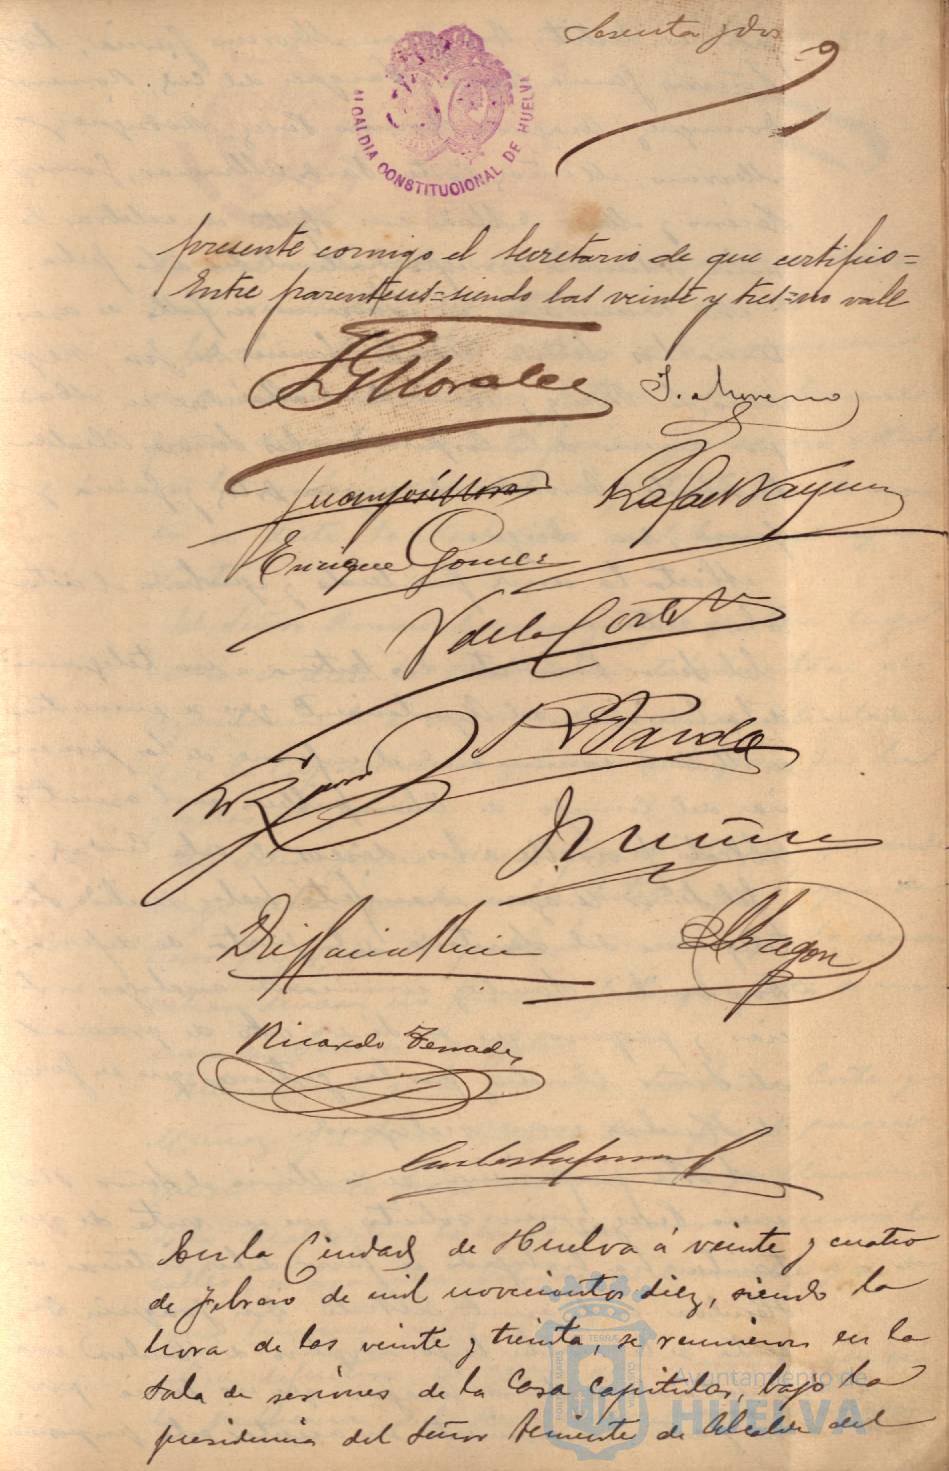 Sesenta y dos
ALCALDIA CONSTITUCIONAL DE HUELVA
presente conmigo el Secretario de que certifico=
Entre parentesis=siendo las veinte y tres=no vale
Morales
J. Moreno
Juan José Mora
Rafael Vazquez
Enrique Gomez
V de la Corte
R Pardo
J. Muñiz
Aragon
Ricardo Terrades
En la Ciudad de Huelva á veinte y cuatro
de Febrero de mil novecientos diez, siendo la
hora de las veinte y treinta, se reunieron en la
Sala de sesiones de la Casa Capitular, bajo la
presidencia del Señor Teniente de Alcalde del
Ayuntamiento de
HUELVA